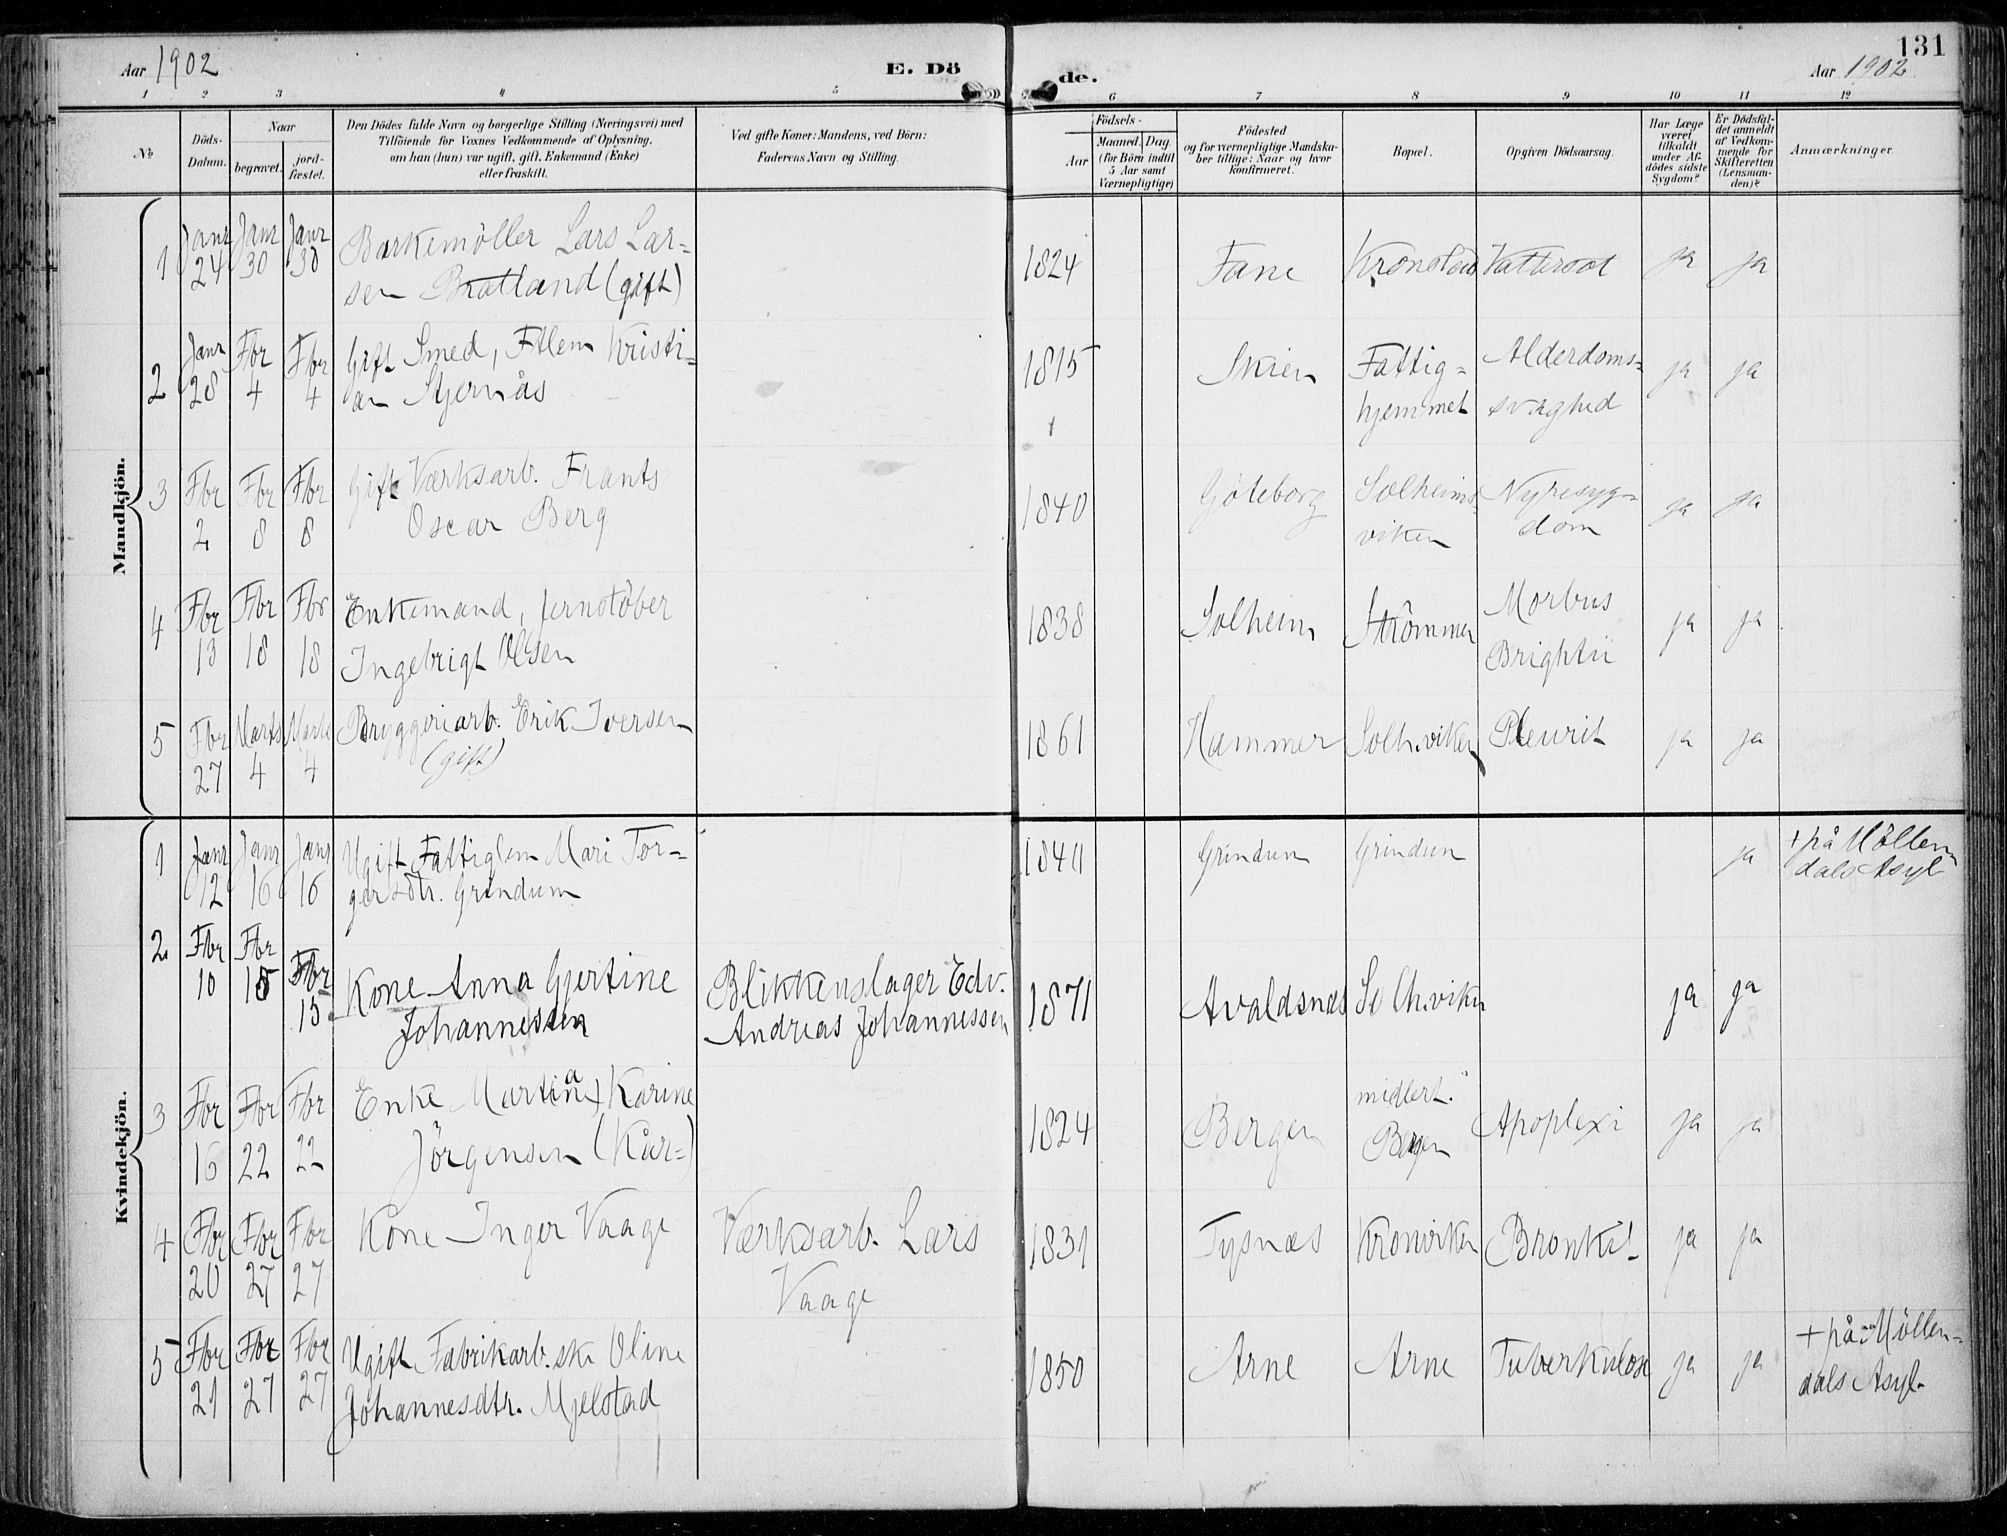 131
Aar 1902 E. Dö de. Aar 1902
1 2 3 4 5 6 7 8 9 10 11 12
No
Döds-Datum.
Naar
begravet.
jord-fæstet.
Den Dödes fulde Navn og borgerlige Stilling (Næringsvei) med
Tilföiende for Voxnes Vedkommende af Oplysning,
om han (hun) var ugift, gift, Enkemand (Enke)
eller fraskilt.
Ved gifte Koner: Mandens, ved Börn:
Faderens Navn og Stilling.
Födsels-
Aar
Maaned. Dag.
(for Börn indtil
5 Aar samt
Værnepligtige)
Födested
og for værnepligtige Mandska-
ber tillige: Naar og hvor
konfirmeret.
Bopæl.
Opgiven Dödsaarsag.
Har Læge
været
tilkaldt
under Af-
dödes sidste
Sygdom?
Er Dödsfal-
det anmeldt
af Vedkom-
mende for
Skifteretten
(Lensman-
den)?
Anmærkninger.
Mandkjön.
1 Janr 24 Janr 30 Janr 30 Barkemöller Lars Lar=
sen Bratland (gift) 1824 Fane Kronstad Vattersot ja ja
2 Janr 28 Fbr 4 Fbr 4 Gift Smed, Ftlem Kristi=
an Stjernås 1815 Skien Fattig=
hjemmet Alderdoms=
svaghed ja ja
3 Fbr 2 Fbr 8 Fbr 8 Gift Værksarb. Frants
Oscar Berg 1840 Göteborg Solheims=
viken Nyresyg=
dom ja ja
4 Fbr 13 Fbr 18 Fbr 18 Enkemand, jernstöber
Ingebrigt Olsen 1838 Solheim Strömmen Morbus
Brightii ja ja
5 Fbr 27 Marts 4 Marts 4 Bryggeriarb. Erik Iversen
(gift) 1861 Hammer Solh.viken Pleurit ja ja
Kvindekjön.
1 Janr 12 Janr 16 Janr 16 Ugift Fattiglem Mari Tor=
gersdtr. Grindum 1840 Grindum Grindum ja + på Möllen=
dals Asyl
2 Fbr 10 Fbr 15 Fbr 15 Kone Anna Gjertine
Johannessen Blikkenslager Edv.
Andreas Johannessen 1871 Avaldsnæs Solh.viken ja ja
3 Fbr 16 Fbr 22 Fbr 22 Enke Martina Karine
Jörgensen (Kar=) 1824 Bergen midlert.
Bergen Apoplexi ja ja
4 Fbr 20 Fbr 27 Fbr 27 Kone Inger Vaage Værksarb. Lars
Vaage 1831 Tysnæs Kronviken Bronkit ja ja
5 Fbr 21 Fbr 27 Fbr 27 Ugift Fabrikarb.ske Oline
Johannesdtr. Mjelstad 1850 Arne Arne Tuberkulose ja ja + på Möllen=
dals Asyl.